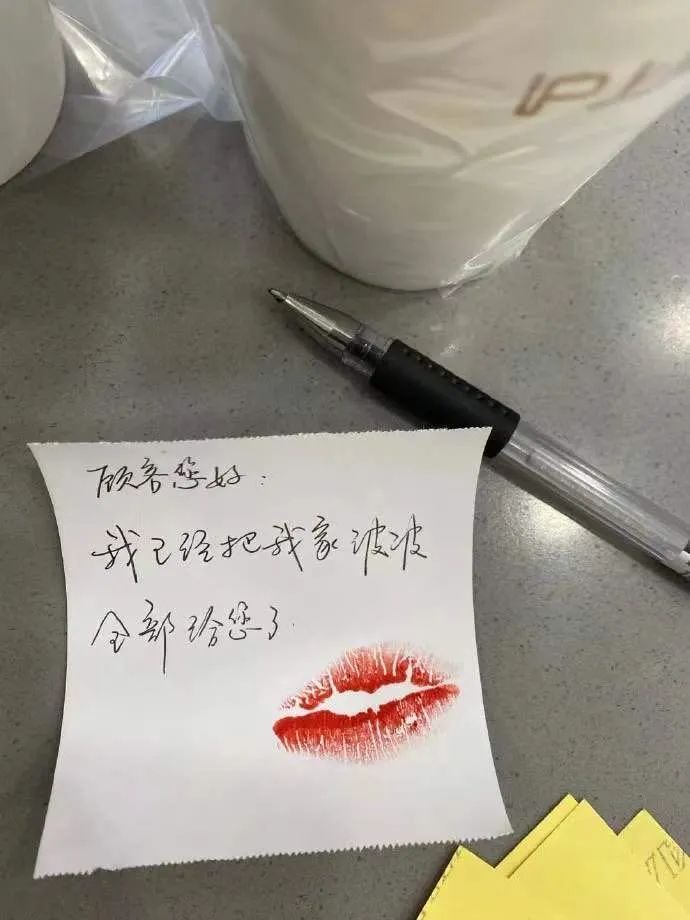 顾客您好：
我已经把我家波波
全部给您了.